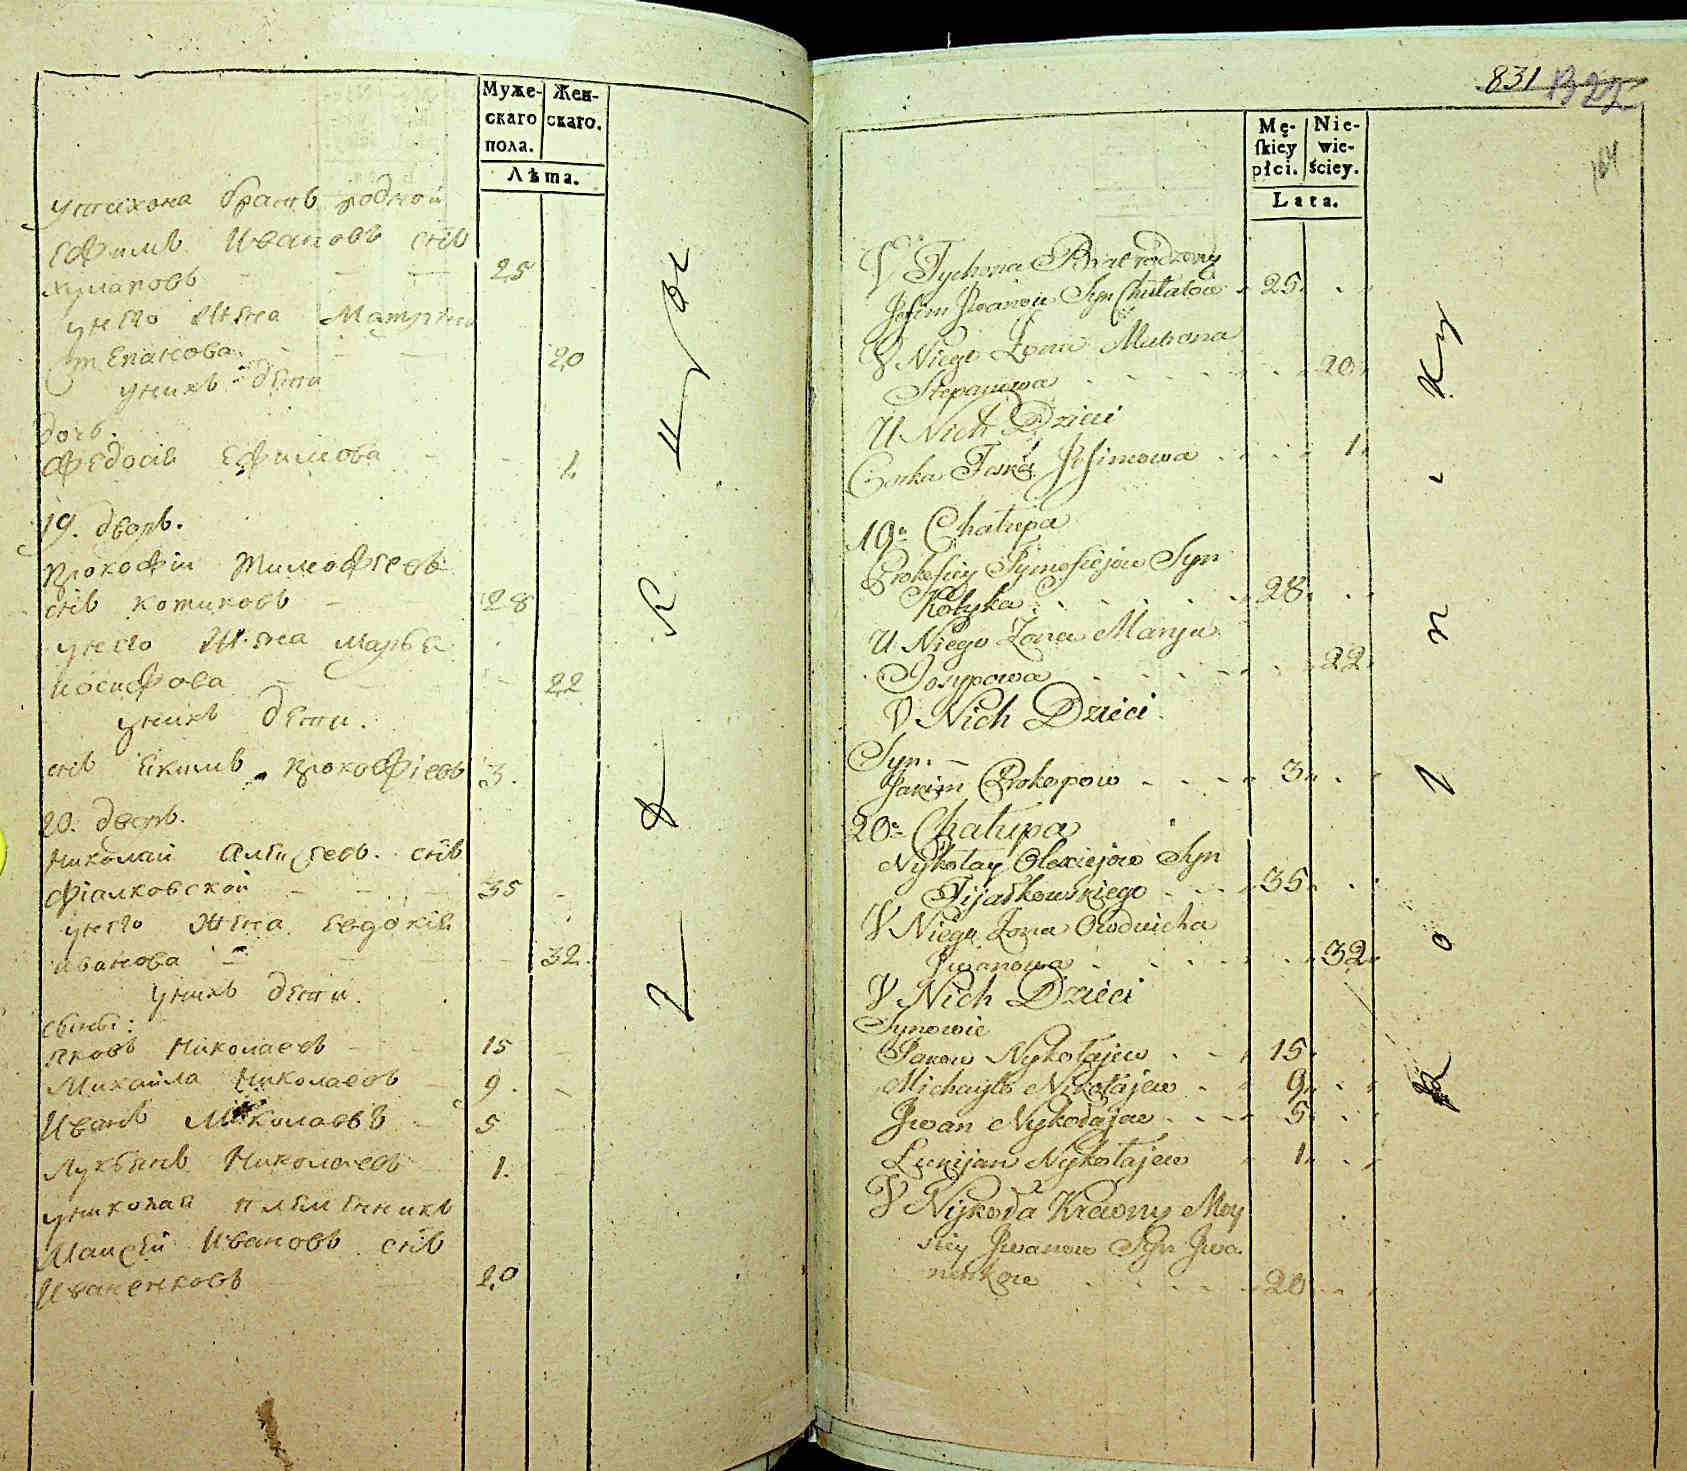 Муже-
скаго
пола.
Жен-
скаго.
Лѣта.
утихона братъ родной
Ефимъ Ивановъ снъ
25
унего жена Матрена
Степанова 20
унихъ дети
дочь.
Федосiя Ефимова 1.
19. дворъ.
Прокофiй Тимофеевъ
снъ Котиковъ 28
унего жена Марья
Иосифова 22
унихъ дети.
снъ Екимъ Прокофiевъ 3.
20. дворъ.
Николай Алексеевъ снъ
Фiалковской 35
унего жена Евдокiя
Иванова 32.
унихъ дети.
сыны:
Яковъ Николаевъ 15
Михайла Николаевъ 9.
Иванъ Николаевъ 5
Лукьянъ Николаевъ 1.
уНиколая племенникъ
Моисей Ивановъ снъ
Иваненковъ 20
831 1322
164
Mę-
ſkiey
płci.
Nie-
wie-
ściey.
Lata.
V Tychona Brat rodzony
Jefim Jwanow Syn 25.
V Niego Żona Matrona
Stepanowa 20.
U Nich Dzieci
Corka Jefimowa 1.
19a Chałupa
Prokofiey Tymofiejow Syn
Kotyka 28.
U Niego Żona Marya
Josypowa 22.
V Nich Dzieci
Syn.
Jakim Prokopow 3.
20a Chałupa
Nykołay Olexiejow Syn
Fijałkowskiego 35.
V Niego Żona Owdoicha
Jwanowa 32.
V Nich Dzieci
Synowie
Jakow Nykołajew 15.
Michayło Nikołajew 9.
Jwan Nykołajew 5.
Łukijan Nykołajew 1.
V Nykoła Krewny Moy
siey Jwanow Syn Jwa
nenkow 20